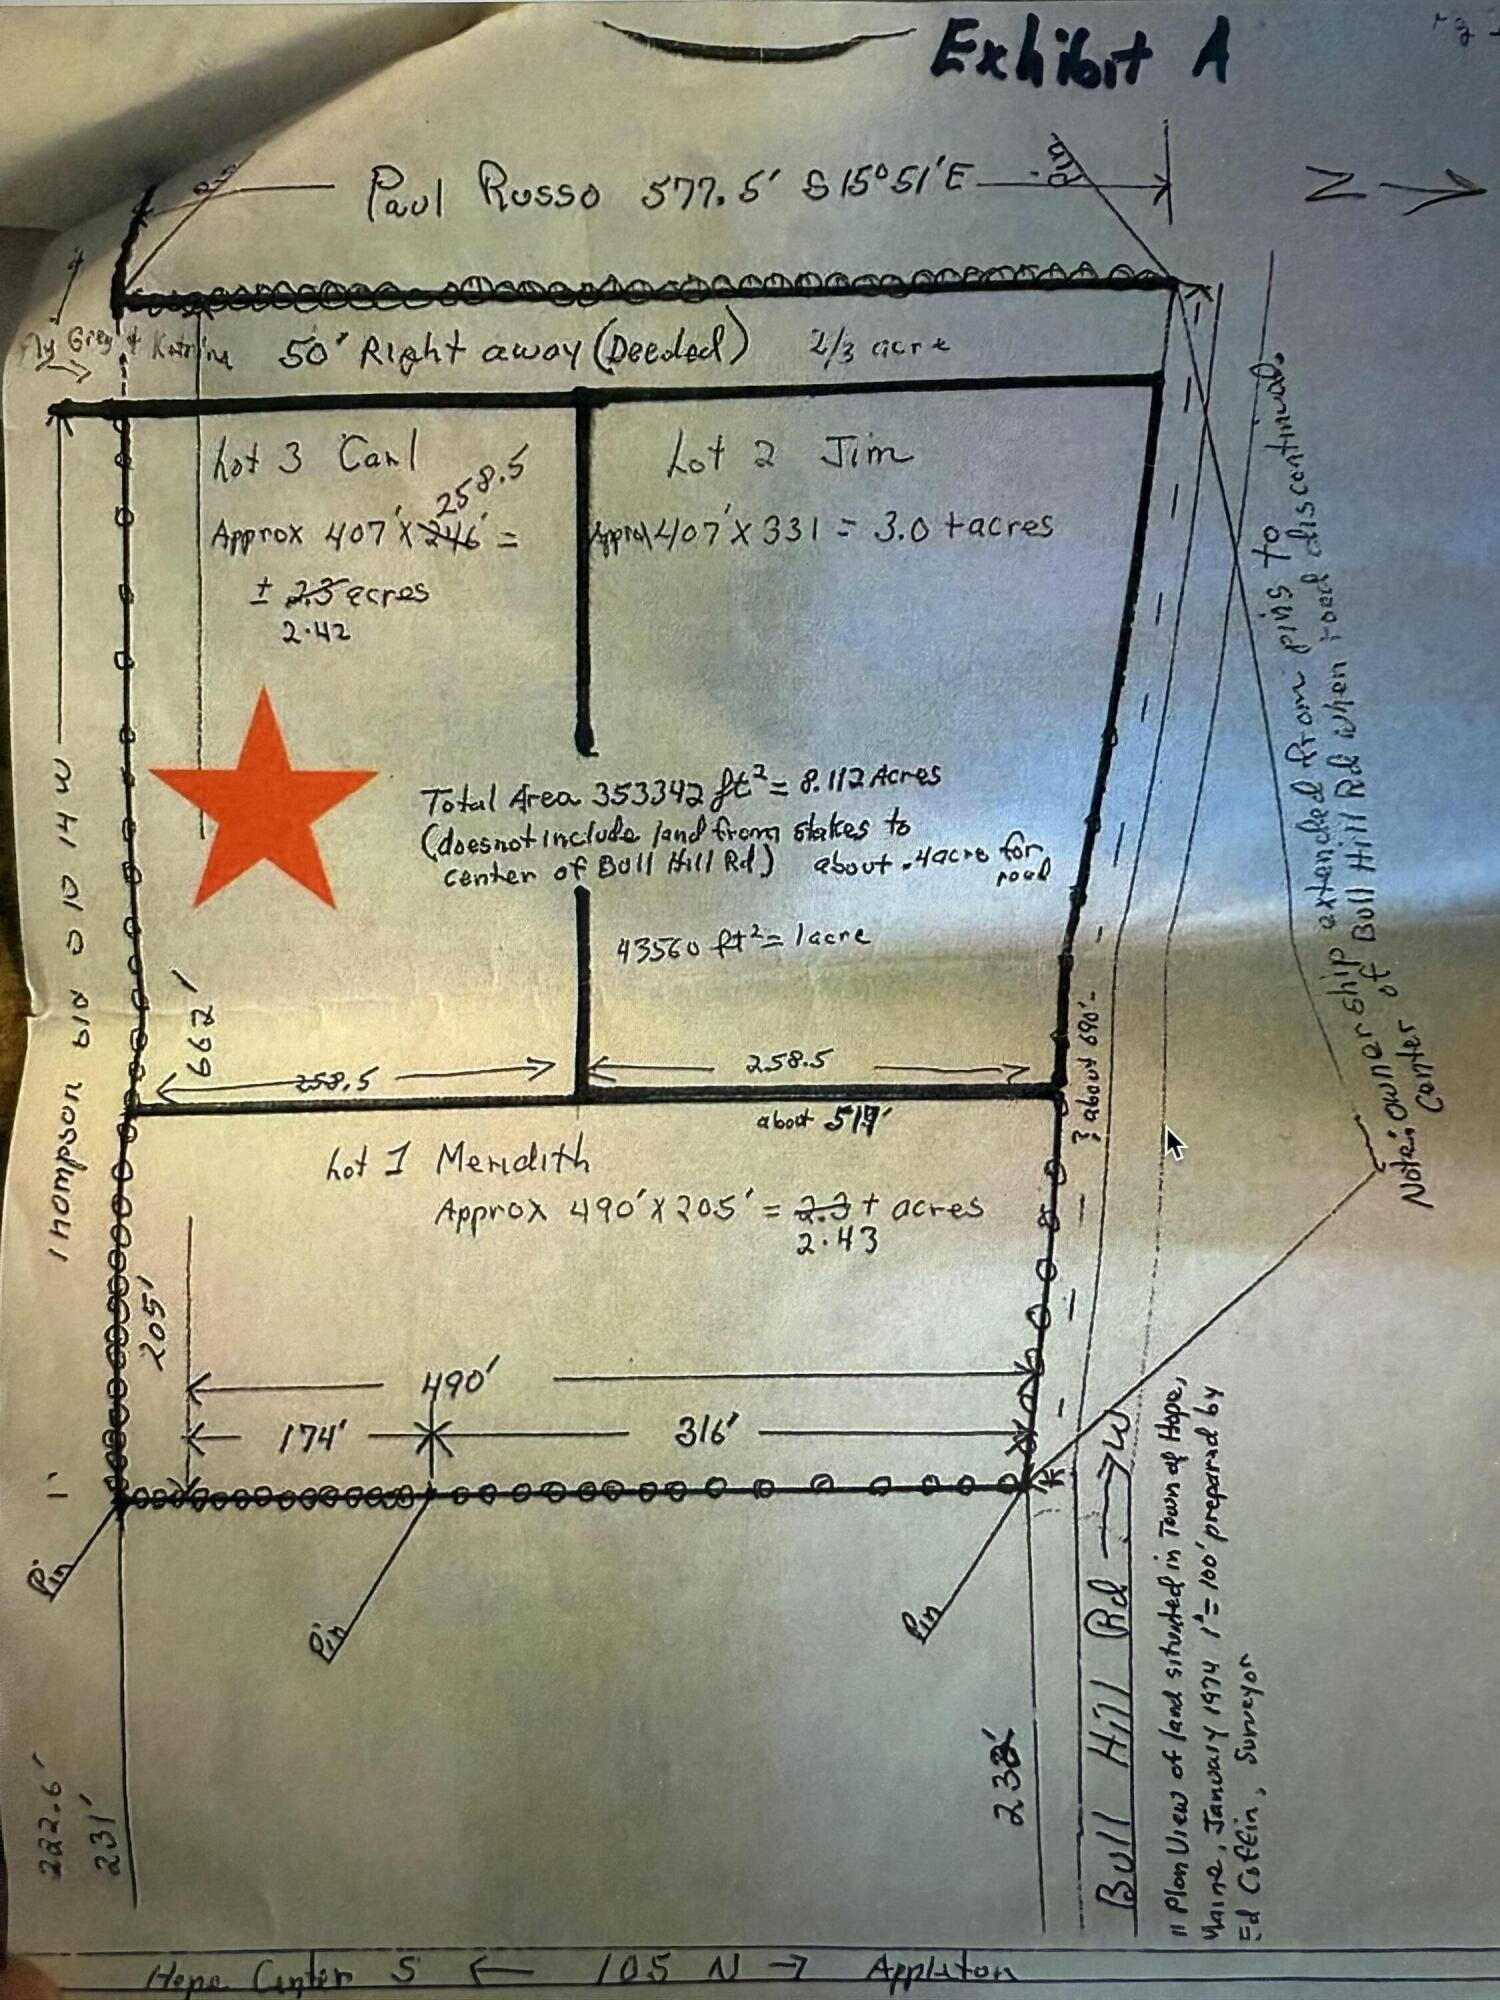 Exhibit A
Paul Russo 577.5' S 15° 51' E
Pin
Pin
N
Fly Grey & Katrina
50' Right away (Deeded) 2/3 acre
Lot 3 Carl
258.5
Approx 407' X 246' =
± 2.5 acres
2.42
Lot 2 Jim
Approx 407' X 331 = 3.0 + acres
Total Area 353342 ft² = 8.112 Acres
(does not include land from stakes to
center of Bull Hill Rd) about .4 acre for
road
43560 ft² = 1 acre
662'
258.5
258.5
about 517'
? about 690'
Thompson
Lot 1 Meridith
Approx 490' X 205' = 2.3 + acres
2.43
205'
490'
174'
316'
1'
Pin
Pin
Pin
222.6'
231'
232'
Bull Hill Rd → W
Note: ownership extended from pins to
Center of Bull Hill Rd when road discontinued.
" Plan View of land situated in Town of Hope,
Maine, January 1974 1" = 100' prepared by
Ed Coffin, Surveyor
Hope Center S ← 105 N → Appleton